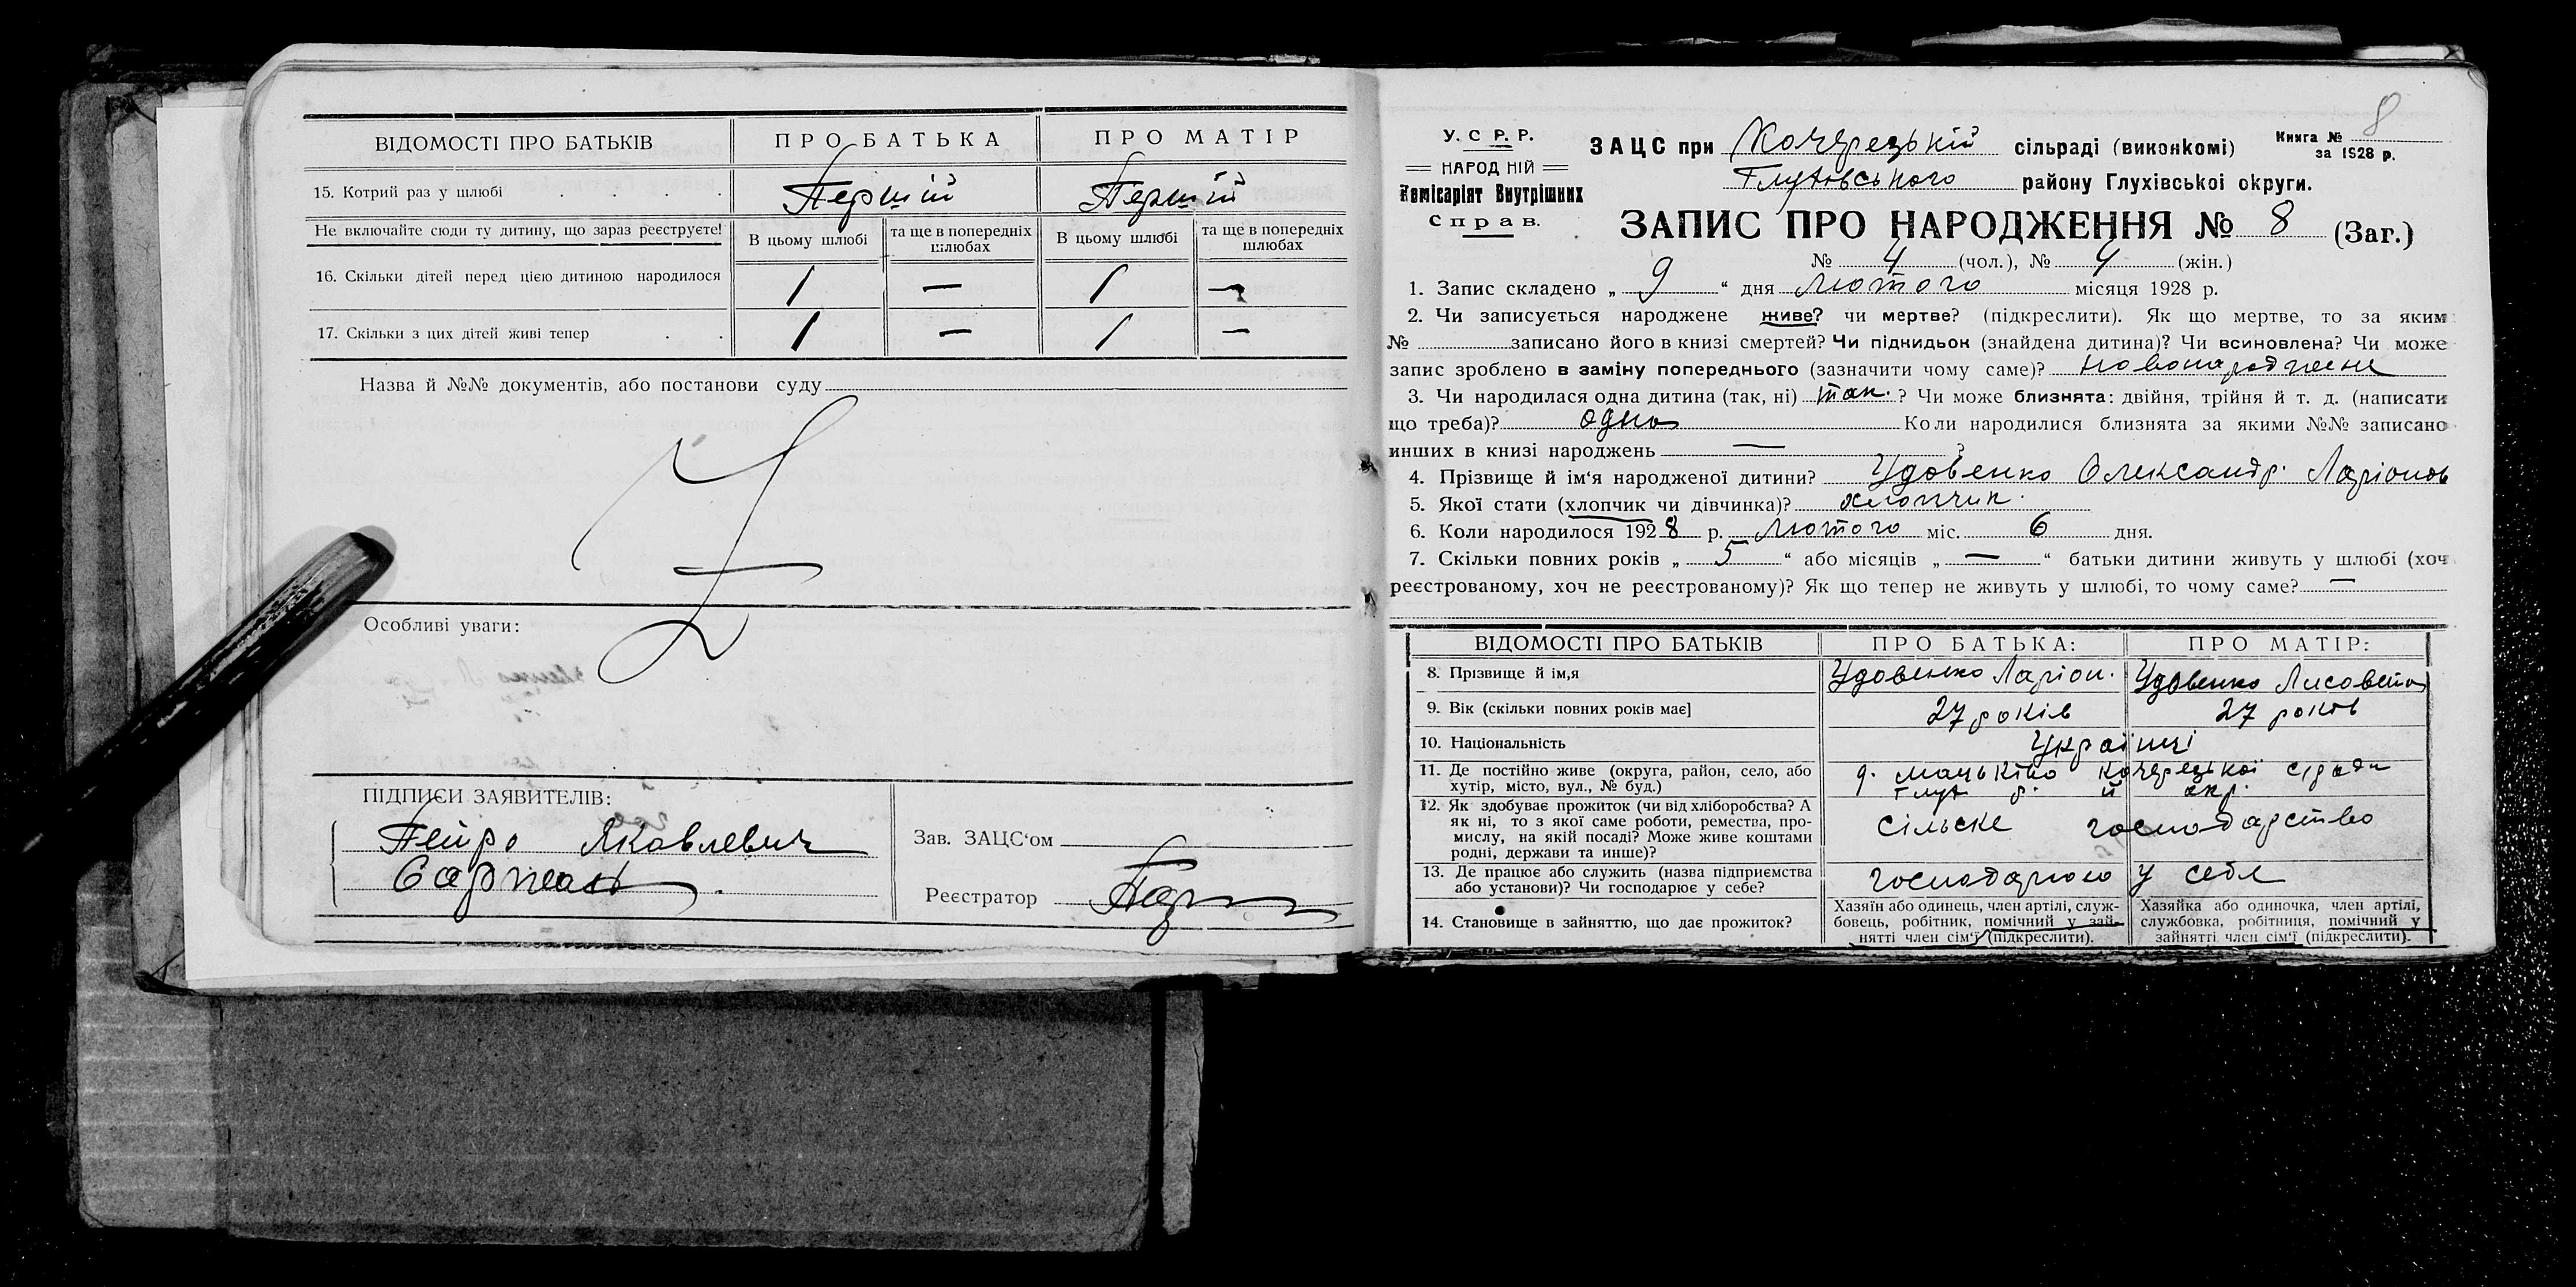 ВІДОМОСТІ ПРО БАТЬКІВ ПРО БАТЬКА ПРО МАТІР
15. Котрий раз у шлюбі Першій Першій
Не включайте сюди ту дитину, що зараз реєструєте! В цьому шлюбі та ще в попередніх шлюбах В цьому шлюбі та ще в попередніх шлюбах
16. Скільки дітей перед цією дитиною народилося 1 — 1 —
17. Скільки з цих дітей живі тепер 1 — 1 —
Назва й №№ документів, або постанови суду
Особливі уваги:
ПІДПИСИ ЗАЯВИТЕЛІВ:
Петро Яковлевич
Зав. ЗАЦС'ом
Реєстратор
У. С Р. Р.
НАРОДНІЙ
Комісаріят Внутрішних
Справ.
ЗАЦС при Кочерезькій сільраді (виконкомі)
Глухівського району Глухівської округи.
Книга № 8
за 1928 р.
ЗАПИС ПРО НАРОДЖЕННЯ № 8 (Заг.)
№ 4 (чол.), № 4 (жін.)
1. Запис складено „ 9 “ дня Лютого місяця 1928 р.
2. Чи записується народжене живе? чи мертве? (підкреслити). Як що мертве, то за яким
№ записано його в книзі смертей? Чи підкидьок (знайдена дитина)? Чи всиновлена? Чи може
запис зроблено в заміну попереднього (зазначити чому саме)? новонароджене
3. Чи народилася одна дитина (так, ні) так. ? Чи може близнята: двійня, трійня й т. д. (написати
що треба)? одна Коли народилися близнята за якими №№ записано
инших в книзі народжень — ?
4. Прізвище й ім'я народженої дитини? Удовенко Олександр. Ларіонов
5. Якої стати (хлопчик чи дівчинка)? хлопчик.
6. Коли народилося 1928 р. Лютого міс. 6 дня.
7. Скільки повних років „ 5 “ або місяців „ — “ батьки дитини живуть у шлюбі (хоч
реєстрованому, хоч не реєстрованому)? Як що тепер не живуть у шлюбі, то чому саме? —
ВІДОМОСТІ ПРО БАТЬКІВ ПРО БАТЬКА: ПРО МАТІР:
8. Прізвище й ім,я Удовенко Ларіон. Удовенко Лисовета
9. Вік (скільки повних років має] 27 років 27 років
10. Національність Українці
11. Де постійно живе (округа, район, село, або
хутір, місто, вул., № буд.)
Кочерезької с/ради
Глух р. й окр.
12. Як здобуває прожиток (чи від хліборобства? А
як ні, то з якої саме роботи, ремества, про-
мислу, на якій посаді? Може живе коштами
родні, держави та инше)?
сільске господарство
13. Де працює або служить (назва підприємства
або установи)? Чи господарює у себе?
господарюю у себе
14. Становище в зайняттю, що дає прожиток?
Хазяїн або одинець, член артілі, служ-
бовець, робітник, помічний у зай-
нятті член сім'ї (підкреслити).
Хазяйка або одиночка, член артілі,
службовка, робітниця, помічний у
зайнятті член сім'ї (підкреслити).